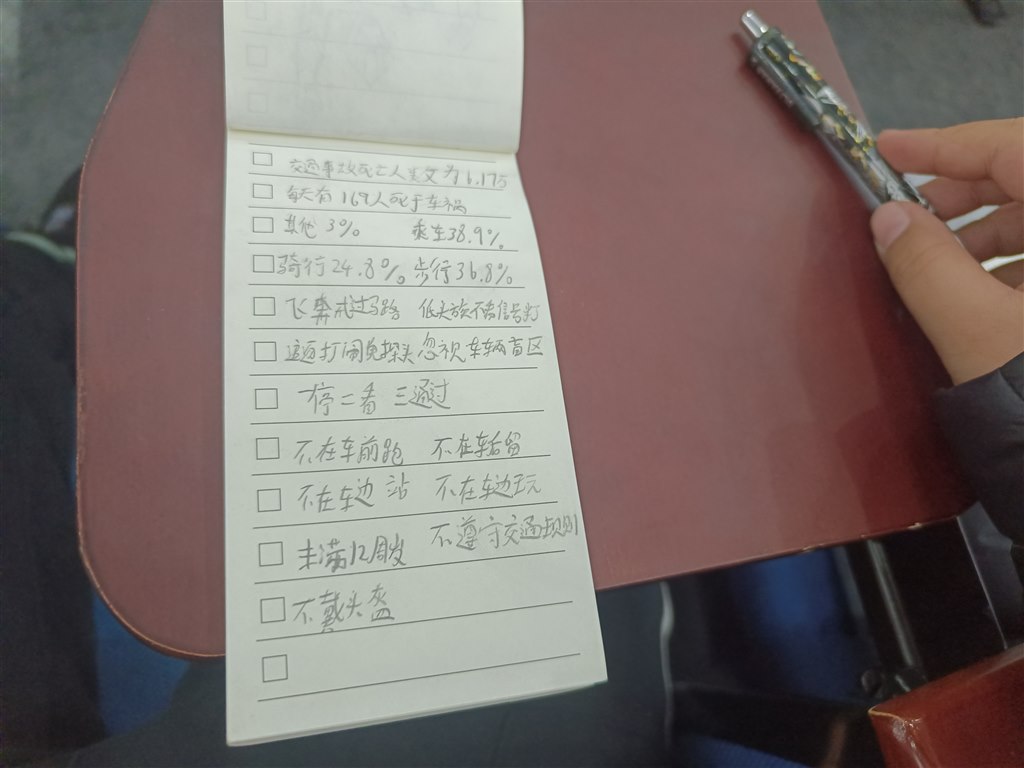 交通事故死亡人数为6.175
每天有169人死于车祸
其他3% 乘车38.9%
骑行24.8% 步行36.8%
飞奔式过马路 低头族不看信号灯
追逐打闹鬼探头 忽视车辆盲区
停二看三通过
不在车前跑 不在车后留
不在车边站 不在车边玩
未满12周岁 不遵守交通规则
不戴头盔